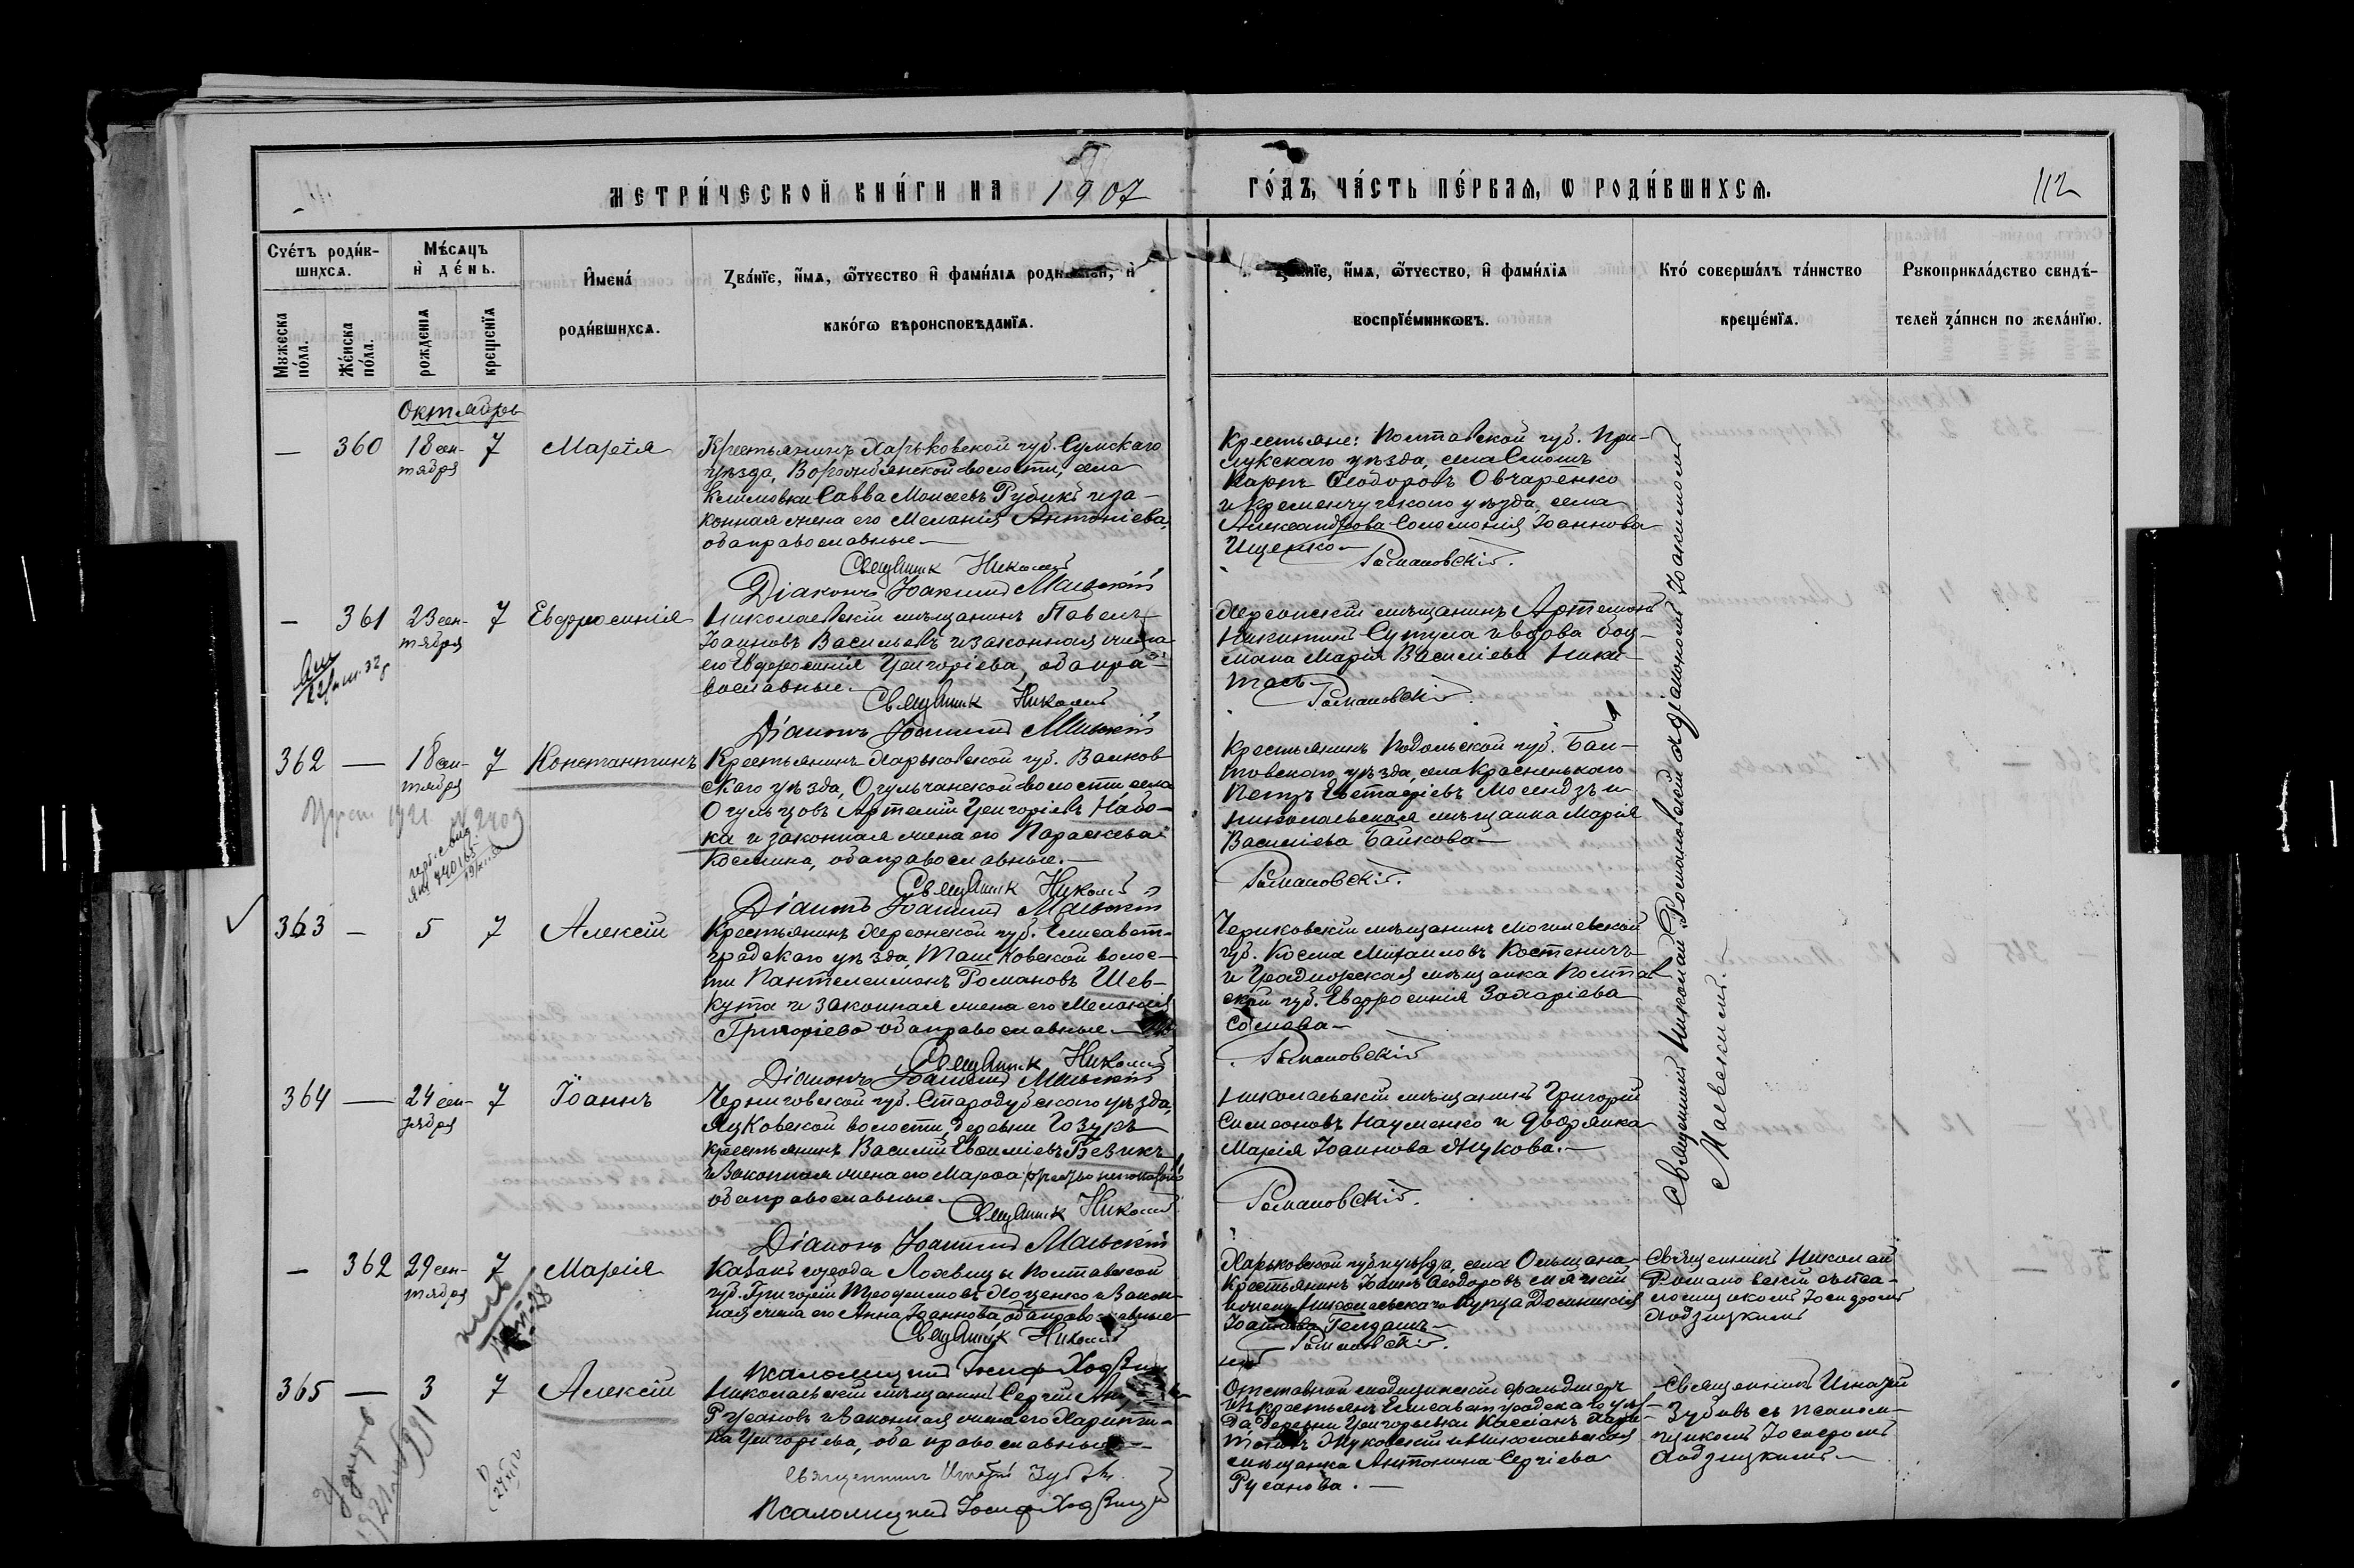 МЕТРИ́ЧЕСКОЙ КНИ́ГИ НА 1907 ГО́ДЪ, ЧА́СТЬ ПЕ́РВАѦ, Ѡ РОДИ́ВШИХСѦ.
112
Счетъ роди́вшихсѧ.
Мꙋжеска по́ла.
Же́нска по́ла.
Мѣ́сѧцъ и҆ де́нь.
рожденїѧ
крещенїѧ
И҆мена́ роди́вшихсѧ.
Зва́нїе, и҆́мѧ, ѻ҆́тчество и҆ фами́лїѧ роди́телей, и҆
како́гѡ вѣроисповѣданїѧ.
Зва́нїе, и҆́мѧ, ѻ҆́тчество, и҆ фами́лїѧ
воспрїе́мникѡвъ.
Кто́ соверша́лъ та́инство
креще́нїѧ.
Рꙋкоприкла́дство свидѣ́-
телей за́писи по жела́нїю.
Октябрь
— 360 18 сен-
тября 7 Марія
Крестьянинъ Харьковской губ. Сумскаго
уѣзда, Ворожбянской волости, села
Климовки Савва Моисеевъ Рубикъ и за-
конная жена его Меланія Антоніева,
оба православные.—
Священник Николай
Діаконъ Іоакимъ Маевскій
Крестьяне: Полтавской губ. При-
лукскаго уѣзда, села Смошъ
Карпъ Ѳеодоровъ Овчаренко
и Кременчугскаго уѣзда, села
Александрова Соломонія Іоаннова
Ищенко—
Романовскій.
— 361 23 сен-
тября 7 Евфросинія
Николаевскій мѣщанинъ Павелъ
Іоанновъ Васильевъ и законная жена
его Евфросинія Григоріева, оба пра-
вославные.—
Священник Николай
Діаконъ Іоакимъ Маевскій
Херсонскій мѣщанинъ Артемонъ
Никитинъ Сутула и вдова боц-
мана Марія Василіева Ники-
Романовскій
362 — 18 сен-
тября 7 Константинъ
Крестьянинъ Харьковской губ. Валков-
скаго уѣзда, Огульчанской волости, села
Огульцовъ Артемій Григоріевъ Набо-
ка и законная жена его Параскева
Космина, оба православные.—
Священник Николай
Діаконъ Іоакимъ Маевскій
Крестьянинъ Подольской губ. Бал-
товскаго уѣзда, села Красненькаго
Петръ Евстафіевъ Мосендзъ и
николаевская мѣщанка Марія
Василіева Байкова—
Романовскій.
363 — 5 7 Алексій
Крестьянинъ Херсонской губ. Елисавет-
градскаго уѣзда волос-
ти Пантелеимонъ Романовъ Шев-
кута и законная жена его Меланія
Григоріева оба православные.—
Священник Николай
Діаконъ Іоакимъ Маевскій
Чериковскій мѣщанинъ Могилевской
губ. Косма Михаиловъ Костеничъ
и Градижская мѣщанка Полтав-
ской губ. Евфросинія Захаріева
Романовскій
364 — 24 сен-
тября 7 Іоаннъ
Черниговской губ. Стародубскаго уѣзда,
волости, деревни
крестьянинъ Василій Евѳиміевъ Бевикъ
и законная жена его Марѳа
оба православные.
Священник Николай
Діаконъ Іоакимъ Маевскій
Николаевскій мѣщанинъ Григорій
Симеоновъ Науменко и дворянка
Марія Іоаннова Жукова.—
Романовскій.
Священникъ Николай Романовскій съ діакономъ Іоакимомъ
Маевскимъ.—
— 362 29 сен-
тября 7 Марія
Казакъ города Лохвицы Полтавской
губ. Григорій Хоценко и закон-
ная жена его Анна Іоаннова, оба православные
Священник Николай
Псаломщикъ Іосифъ Ходзицкій
Харьковской губ. и уѣзда, села Ольшана
крестьянинъ Іоаннъ Ѳеодоровъ
Николаевскаго купца Домникія
Романовскій.
Священникъ Николай
Романовскій съ псало-
мщикомъ Іосифомъ
Ходзицкимъ
365 — 3 7 Алексій
Николаевскій мѣщанинъ Сергій
Русановъ и законная жена его Харити-
на Григоріева, оба православные—
Священникъ Игнатій Зубовъ
Псаломщикъ Іосифъ Ходзицкій
Отставной медицинскій фельдшеръ
изъ крестьянъ Елисаветградскаго уѣз-
да деревни Григорьевки Кассіанъ Хари-
тоновъ Жуковскій и Николаевская
мѣщанка Антонина Сергіева
Русанова.—
Священникъ Игнатій
Зубовъ съ псалом-
щикомъ Іосифомъ
Ходзицкимъ—